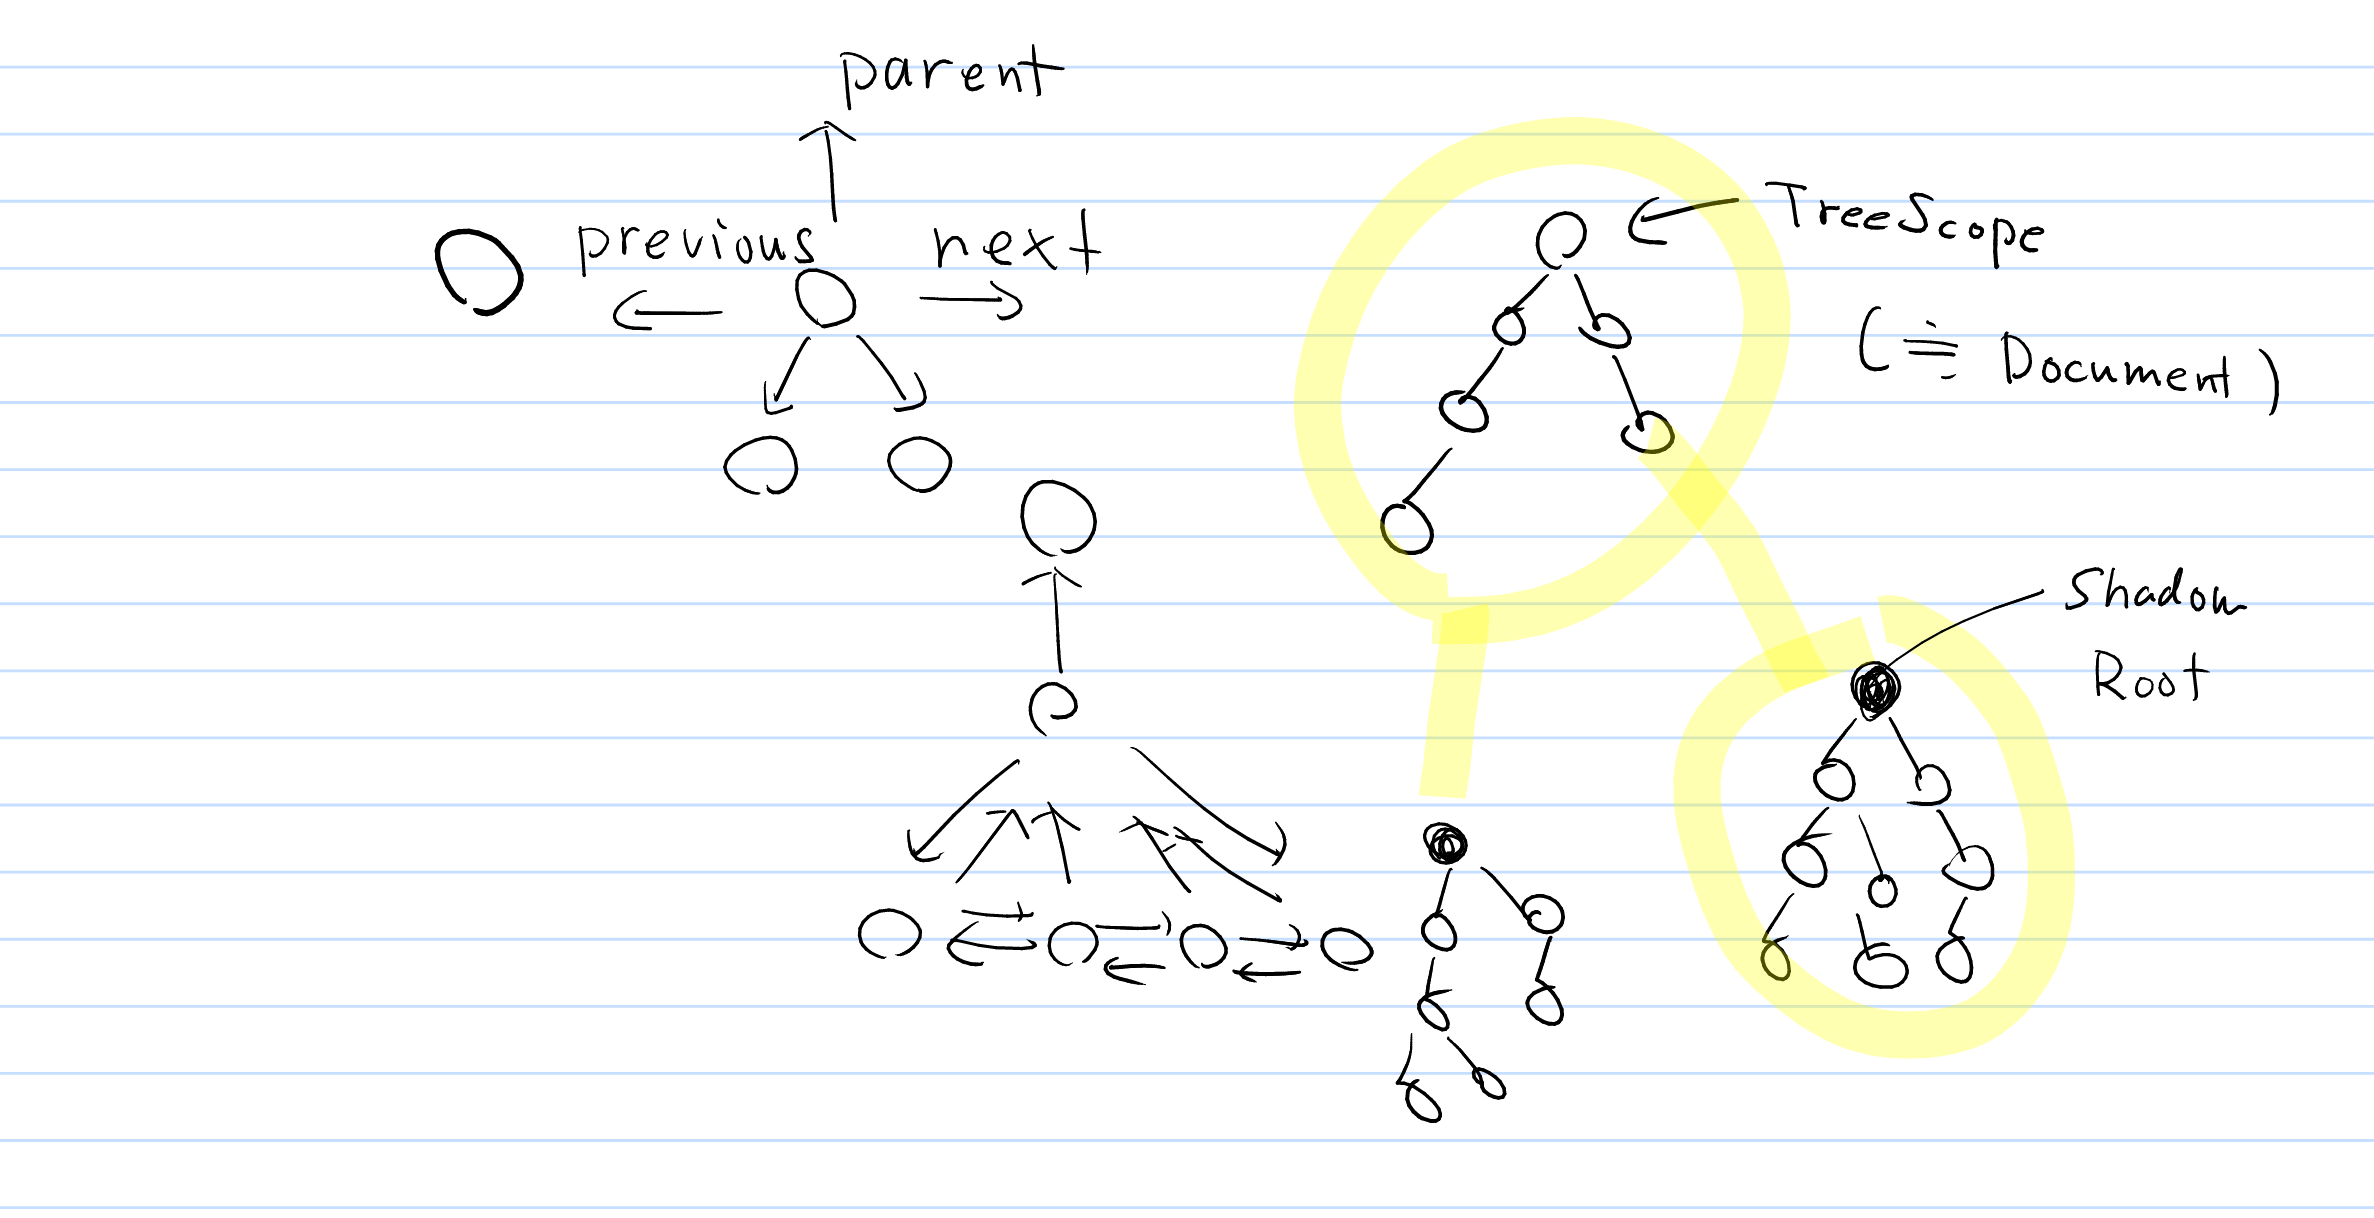 parent
previous
next
TreeScope
(≒ Document)
Shadow
Root